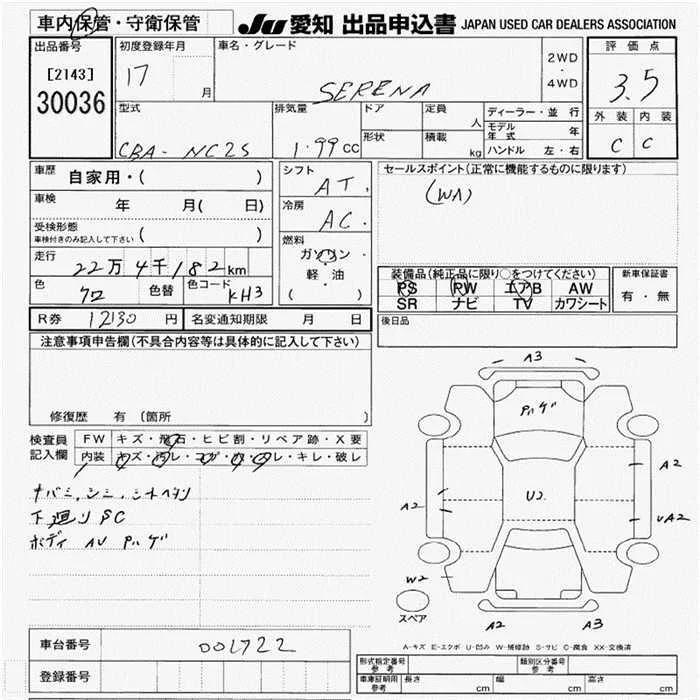 車内保管・守衛保管
JU 愛知 出品申込書 JAPAN USED CAR DEALERS ASSOCIATION
出品番号
[2143]
30036
初度登録年月
17 月
車名・グレード
SERENA
2WD
・
4WD
評価点
3.5
外装 内装
C C
型式
CBA- NC25
排気量
1.99 CC
ドア
形状
定員
人
積載
kg
ディーラー・並行
モデル年式 年
ハンドル 左・右
車歴 自家用・( )
車検 年 月( 日)
受検形態
車検付きのみ記入して下さい ( )
走行 22万4千182km
色 クロ 色替 色コード KH3
シフト
AT.
冷房
AC.
燃料
ガソリン・
軽・油
( )
セールスポイント(正常に機能するものに限ります)
(WA)
装備品(純正品に限り○をつけてください)
PS PW エアB AW
SR ナビ TV カワシート
新車保証書
有・無
R券 12130 円 名変通知期限 月 日
後日品
注意事項申告欄(不具合内容等は具体的に記入して下さい)
修復歴 有 (箇所 )
検査員記入欄
FW キズ・飛石・ヒビ割・リペア跡・X要
内装 キズ・汚レ・コゲ・カ・・キレ・破レ
ナバミ,シミ,シートヘタリ
下廻りSC
ボディ AU Pハゲ
A3
Pハゲ
A2
A2
U2
UA2
W2
スペア
A2
A3
A-キズ E-エクボ U-凹み W-補修跡 S-サビ C-腐食 XX-交換済
車台番号 001722
登録番号
形式指定番号 参考
類別区分番号 参考
車庫証明用 参考 長さ cm 幅 cm 高さ cm